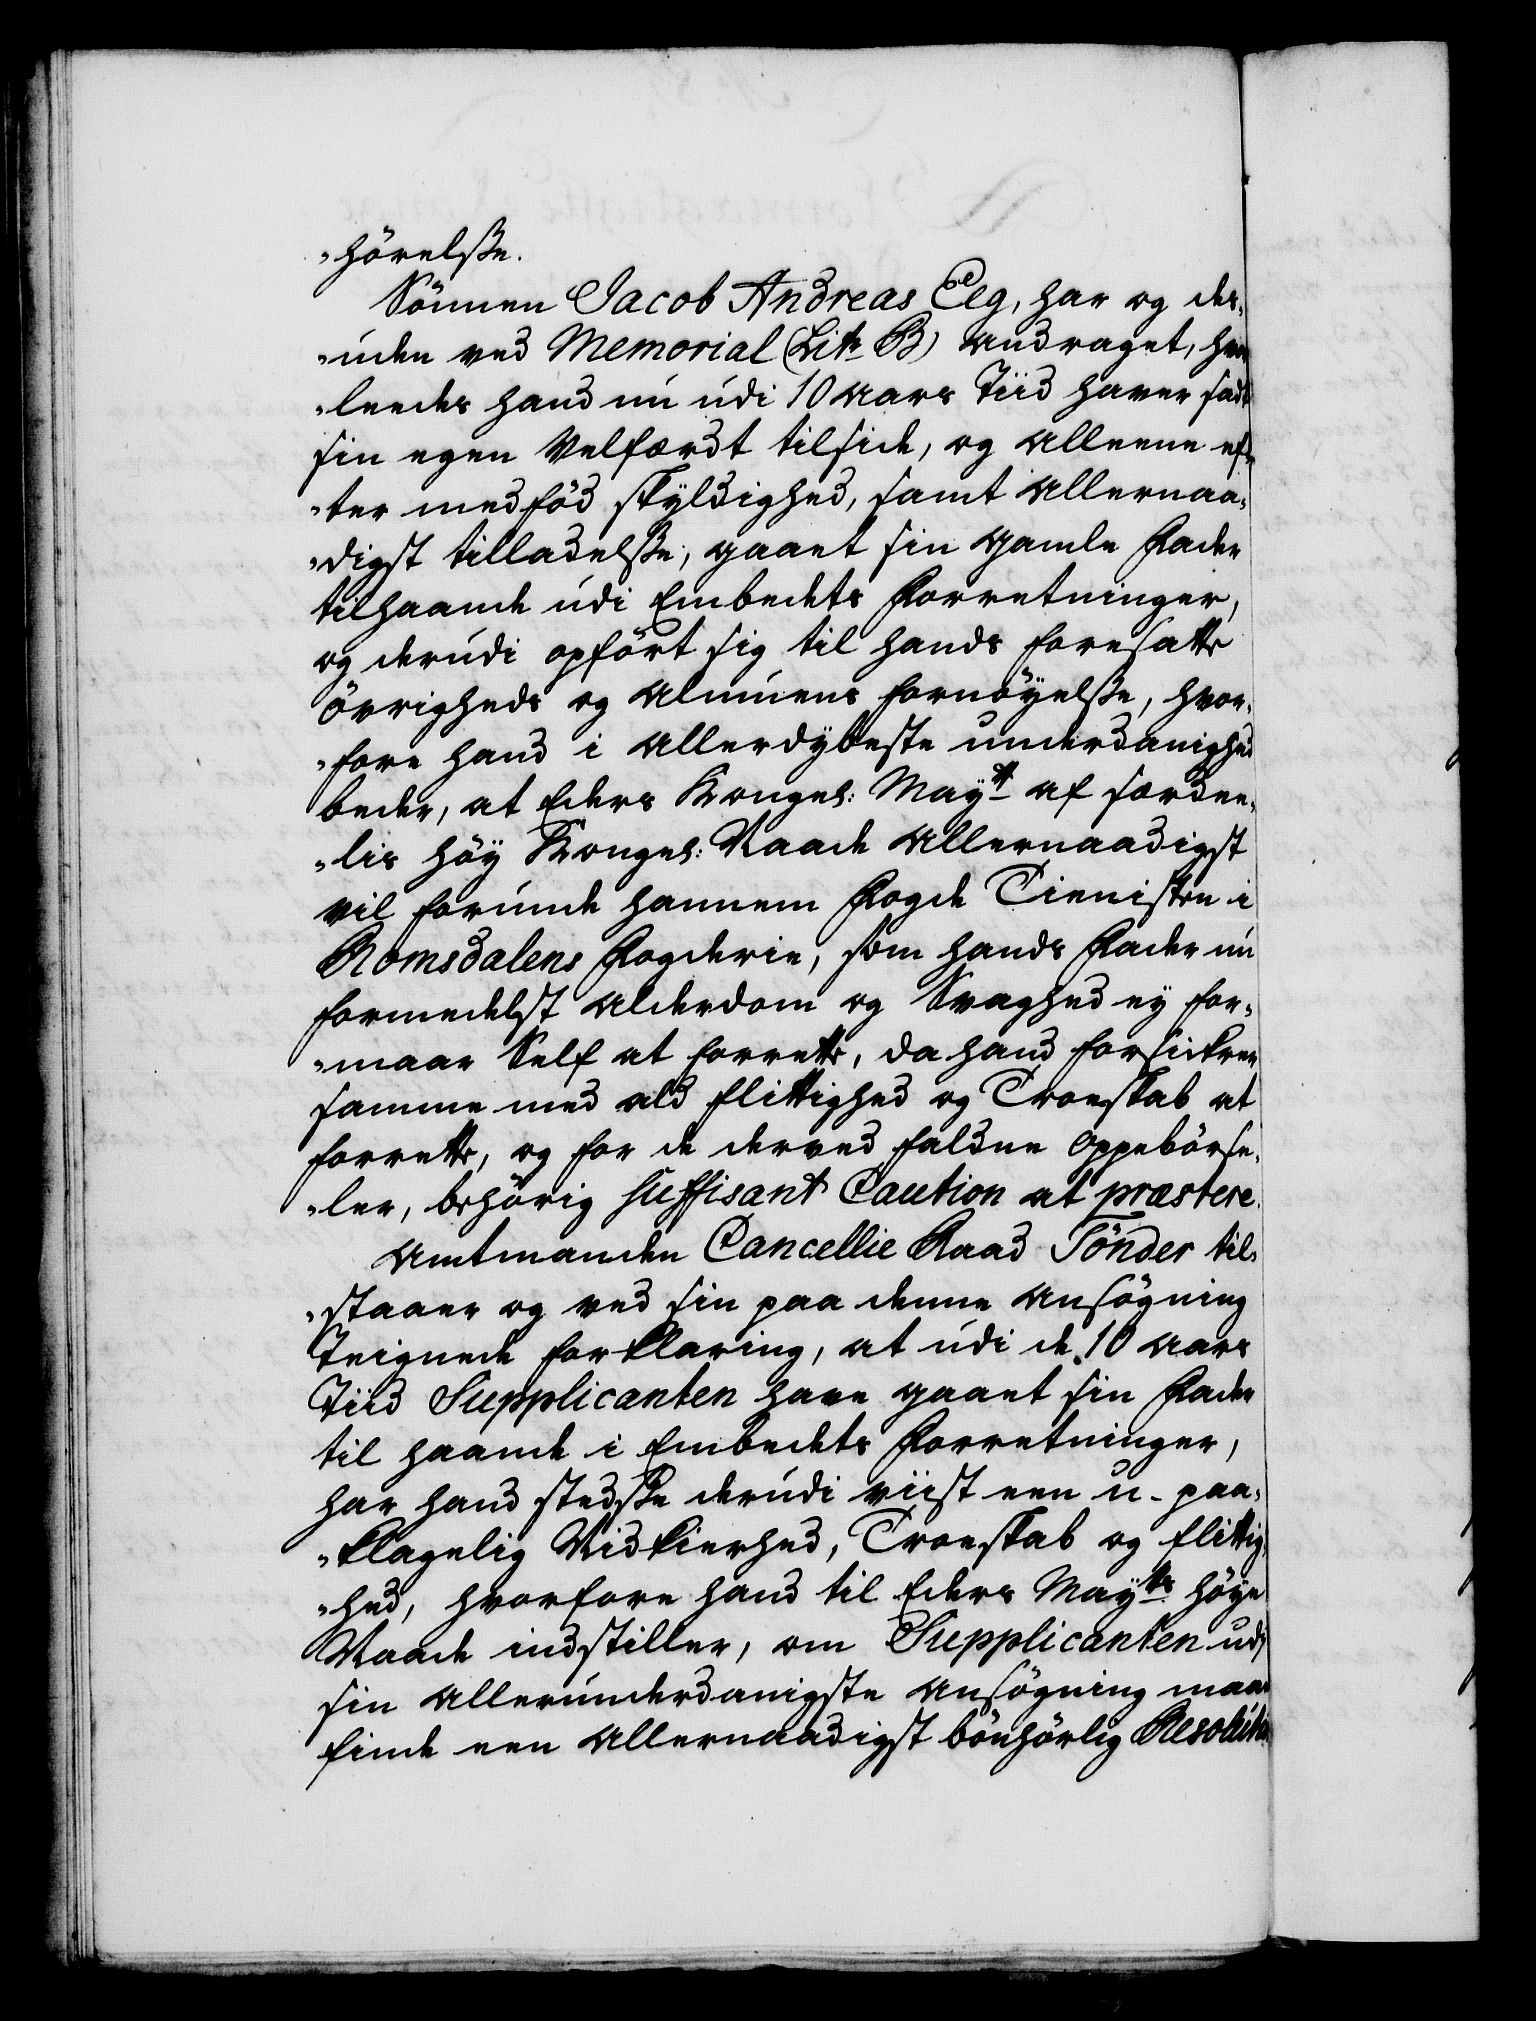 „hörelsse.
Sönnen Jacob Andreas Eeg, har og des„
„uden ved Memorial (Litr B) andraget, hvor
„leedes hand nu udi 10 Aars Tiid haver sadt
sin egen Velfærdt tilside, og alleene ef„
„ter medfød skyldighed, samt allernaa„
„digst tilladelsse, gaaet sin gamle Fader
tilhaande udi Embedets Forretninger,
og derudi opført sig til hands foresatte
Øvrigheds og Almuens fornöyelsse, hvor„
„fore hand i allerdybeste underdanighed
beder, at Eders Kongel: Mayt af særdee„
„lis höy Kongel: Naade allernaadigst
vil forunde hannem Fogde Tienisten i
Romsdalens Fogderie, som hands Fader nu
formedelst Alderdom og Svaghed ey for„
„maar Self at forrette, da hand forsickrer
samme med ald flittighed og Troeskab at
forrette, og for de derved faldne Oppebörse„
„ler, behörig suffisant Caution at præstere.
Amtmanden Cancellie Raad Tönder til„
„staaer og ved sin paa denne Ansögning
Teignede forklaring, at udi de 10 Aars
Tiid Supplicanten have gaaet sin Fader
til haande i Embedets Forretninger,
har hand stedsse derudi viist een u-paa„
„klagelig Nidkierhed, Troeskab og flittig„
„hed, hvorfore hand til Eders Mayts höye
Naade indstiller, om Supplicanten udi
sin allerunderdanigste Ansögning maae
finde een allernaadigst bönhörlig Resolution